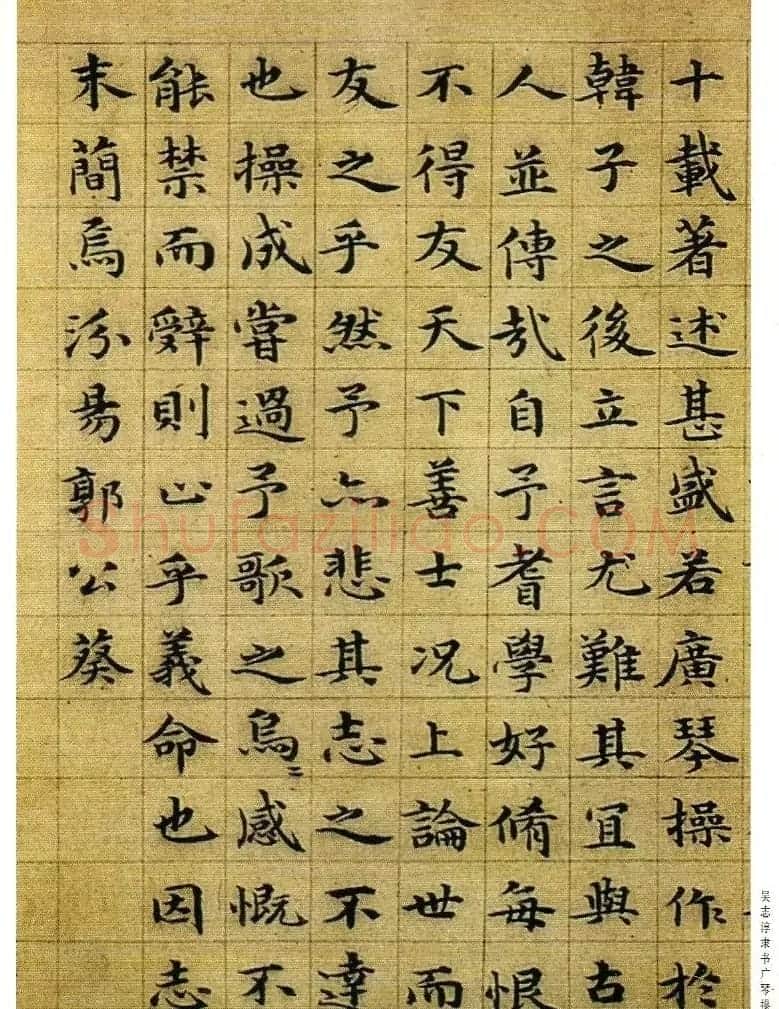 十載著述甚盛若廣琴操作於
韓子之後立言尤難其宜與古
人並傳哉自予耆學好脩每恨
不得友天下善士況上論世而
友之乎然予亦悲其志之不達
也操成嘗過予歌之烏〻感慨不
能禁而辤則止乎義命也因志
末簡焉汾易郭公葵
吴志淳隶书广琴操
Shufaziliao.COM